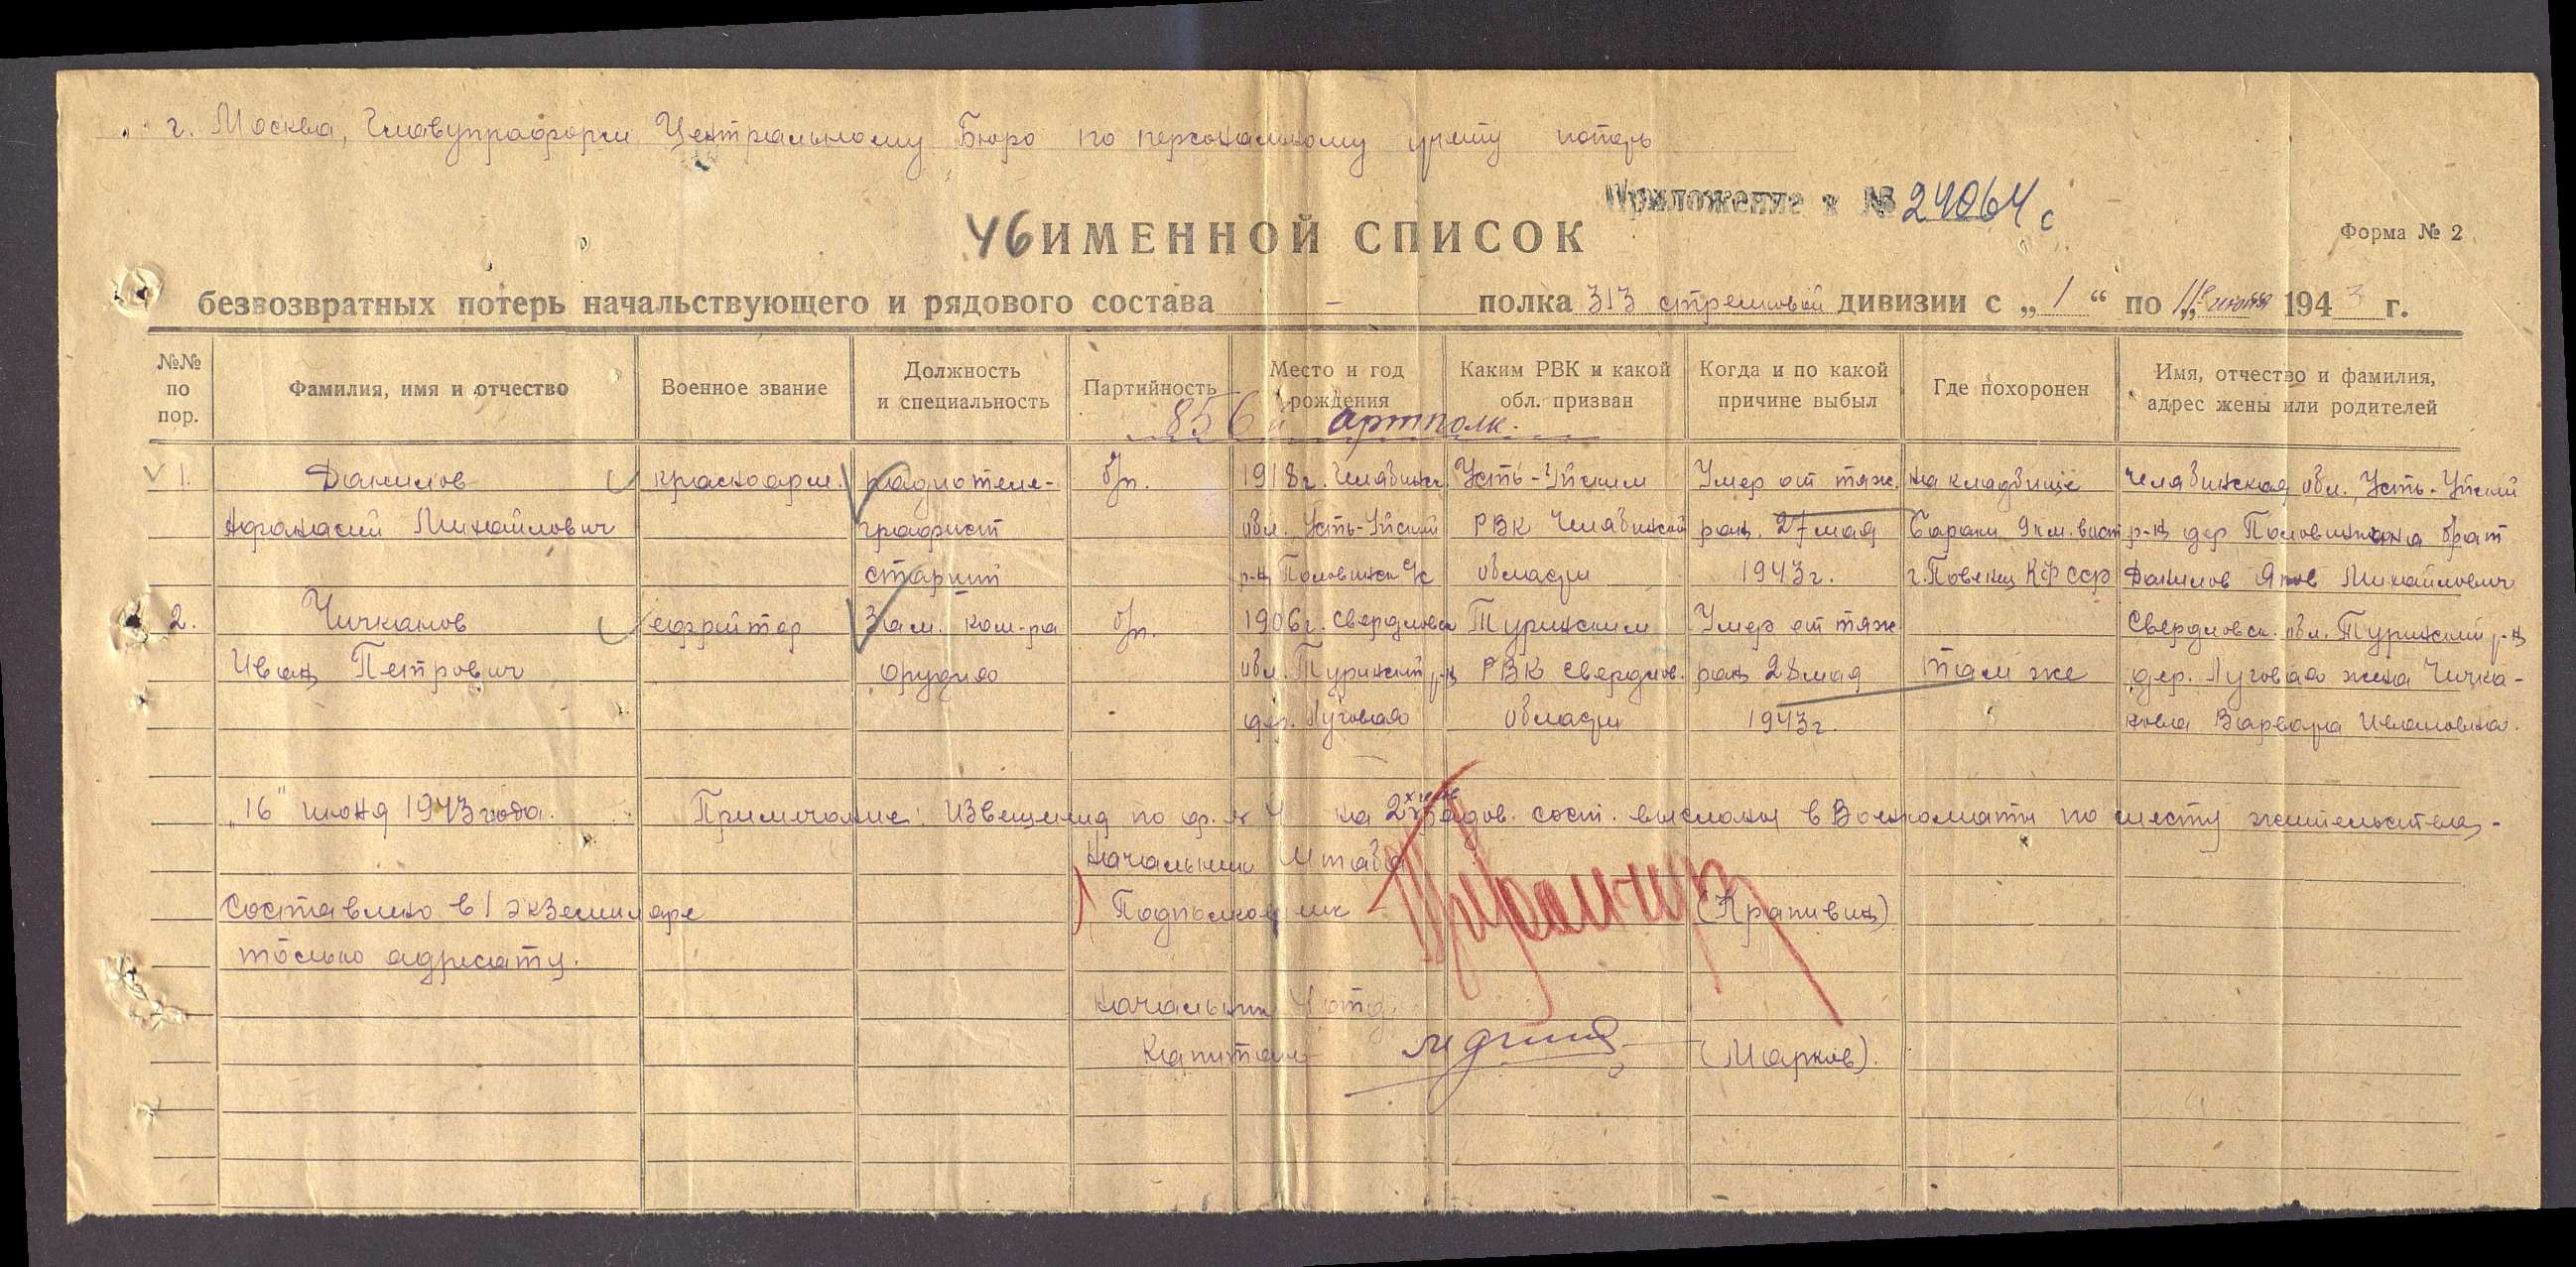 г. Москва, Главупраформ Центральному Бюро по персональному учету потерь
Приложение к № 24064 с
46 ИМЕННОЙ СПИСОК
Форма № 2
безвозвратных потерь начальствующего и рядового состава - полка 313 стрелковой дивизии с „ 1 “ по 11 июня 1943 г.
№№ по пор.
Фамилия, имя и отчество
Военное звание
Должность и специальность
Партийность
Место и год рождения
Каким РВК и какой обл. призван
Когда и по какой причине выбыл
Где похоронен
Имя, отчество и фамилия, адрес жены или родителей
856 й артполк.
1. Данилов красноарм. радиотеле- б/п. 1918г. Челябинск Усть-Уйским Умер от тяж. на кладбище Челябинская обл., Усть-Уйский
Афанасий Михайлович графист обл. Усть-Уйский РВК Челябинской ран. 27 мая Бараки 9 км. вост р-н дер Половинная брат
старший р-н Половинск с/с области 1943г. г. Повенец КФССР Данилов Яков Михайлович
2. Чичканов ефрейтор Зам. ком-ра б/п. 1906г. Свердловск Туринским Умер от тяж. Свердловск. обл. Туринский р-н
Иван Петрович орудия обл. Туринский р-н РВК Свердлов. ран 28 мая там же дер. Луговая жена Чичка-
дер. Луговая области 1943г. нова Варвара Ивановна.
„16" июня 1943 года. Примечание: Извещения по ф. № 4 на 2х чел. рядов. сост. высланы в Военкоматы по месту жительства.-
Начальник Штаба
Составлено в 1 экземпляре Подполковник (Крапивин)
только адресату.
Начальник 4 отд.
Капитан (Марков).